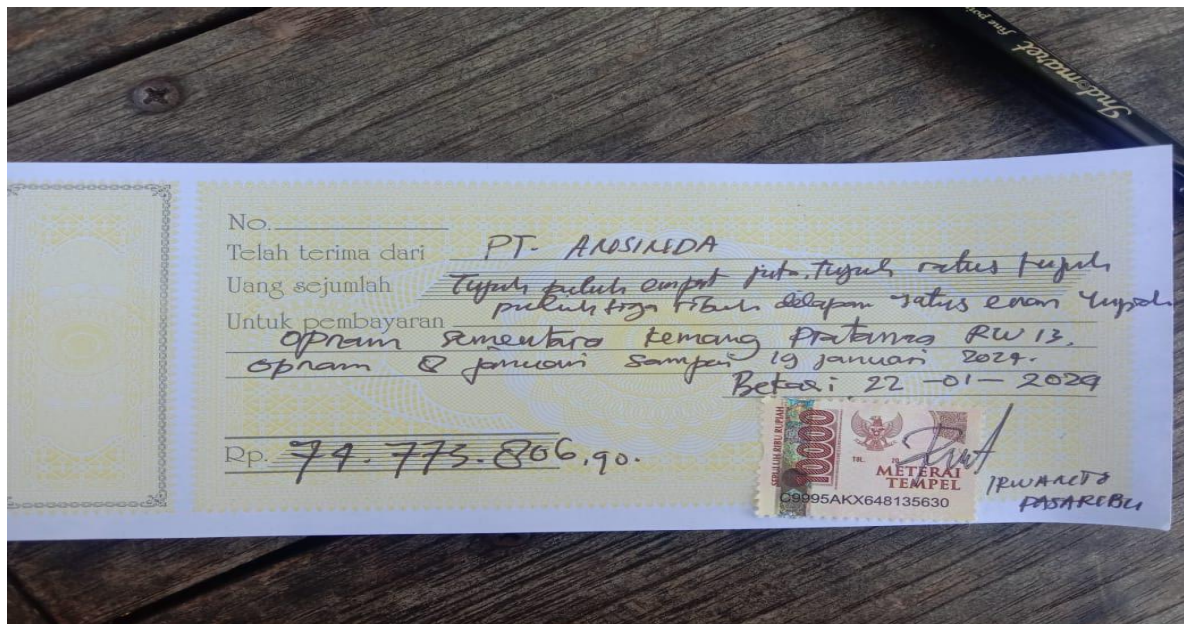 Indomaret fine point
No.
Telah terima dari PT. ANSINDA
Uang sejumlah Tujuh puluh empat juta tujuh ratus tujuh
puluh tiga ribu delapan ratus enam rupiah
Untuk pembayaran
Opnam sementara Kemang Pratama RW 13.
Opnam 8 januari sampai 19 januari 2024.
Bekasi 22-01-2024
Rp. 74.773.806,90.
SEPULUH RIBU RUPIAH
10000
TGL. 20
METERAI
TEMPEL
C9995AKX648135630
IRWANTO
PASARIBU